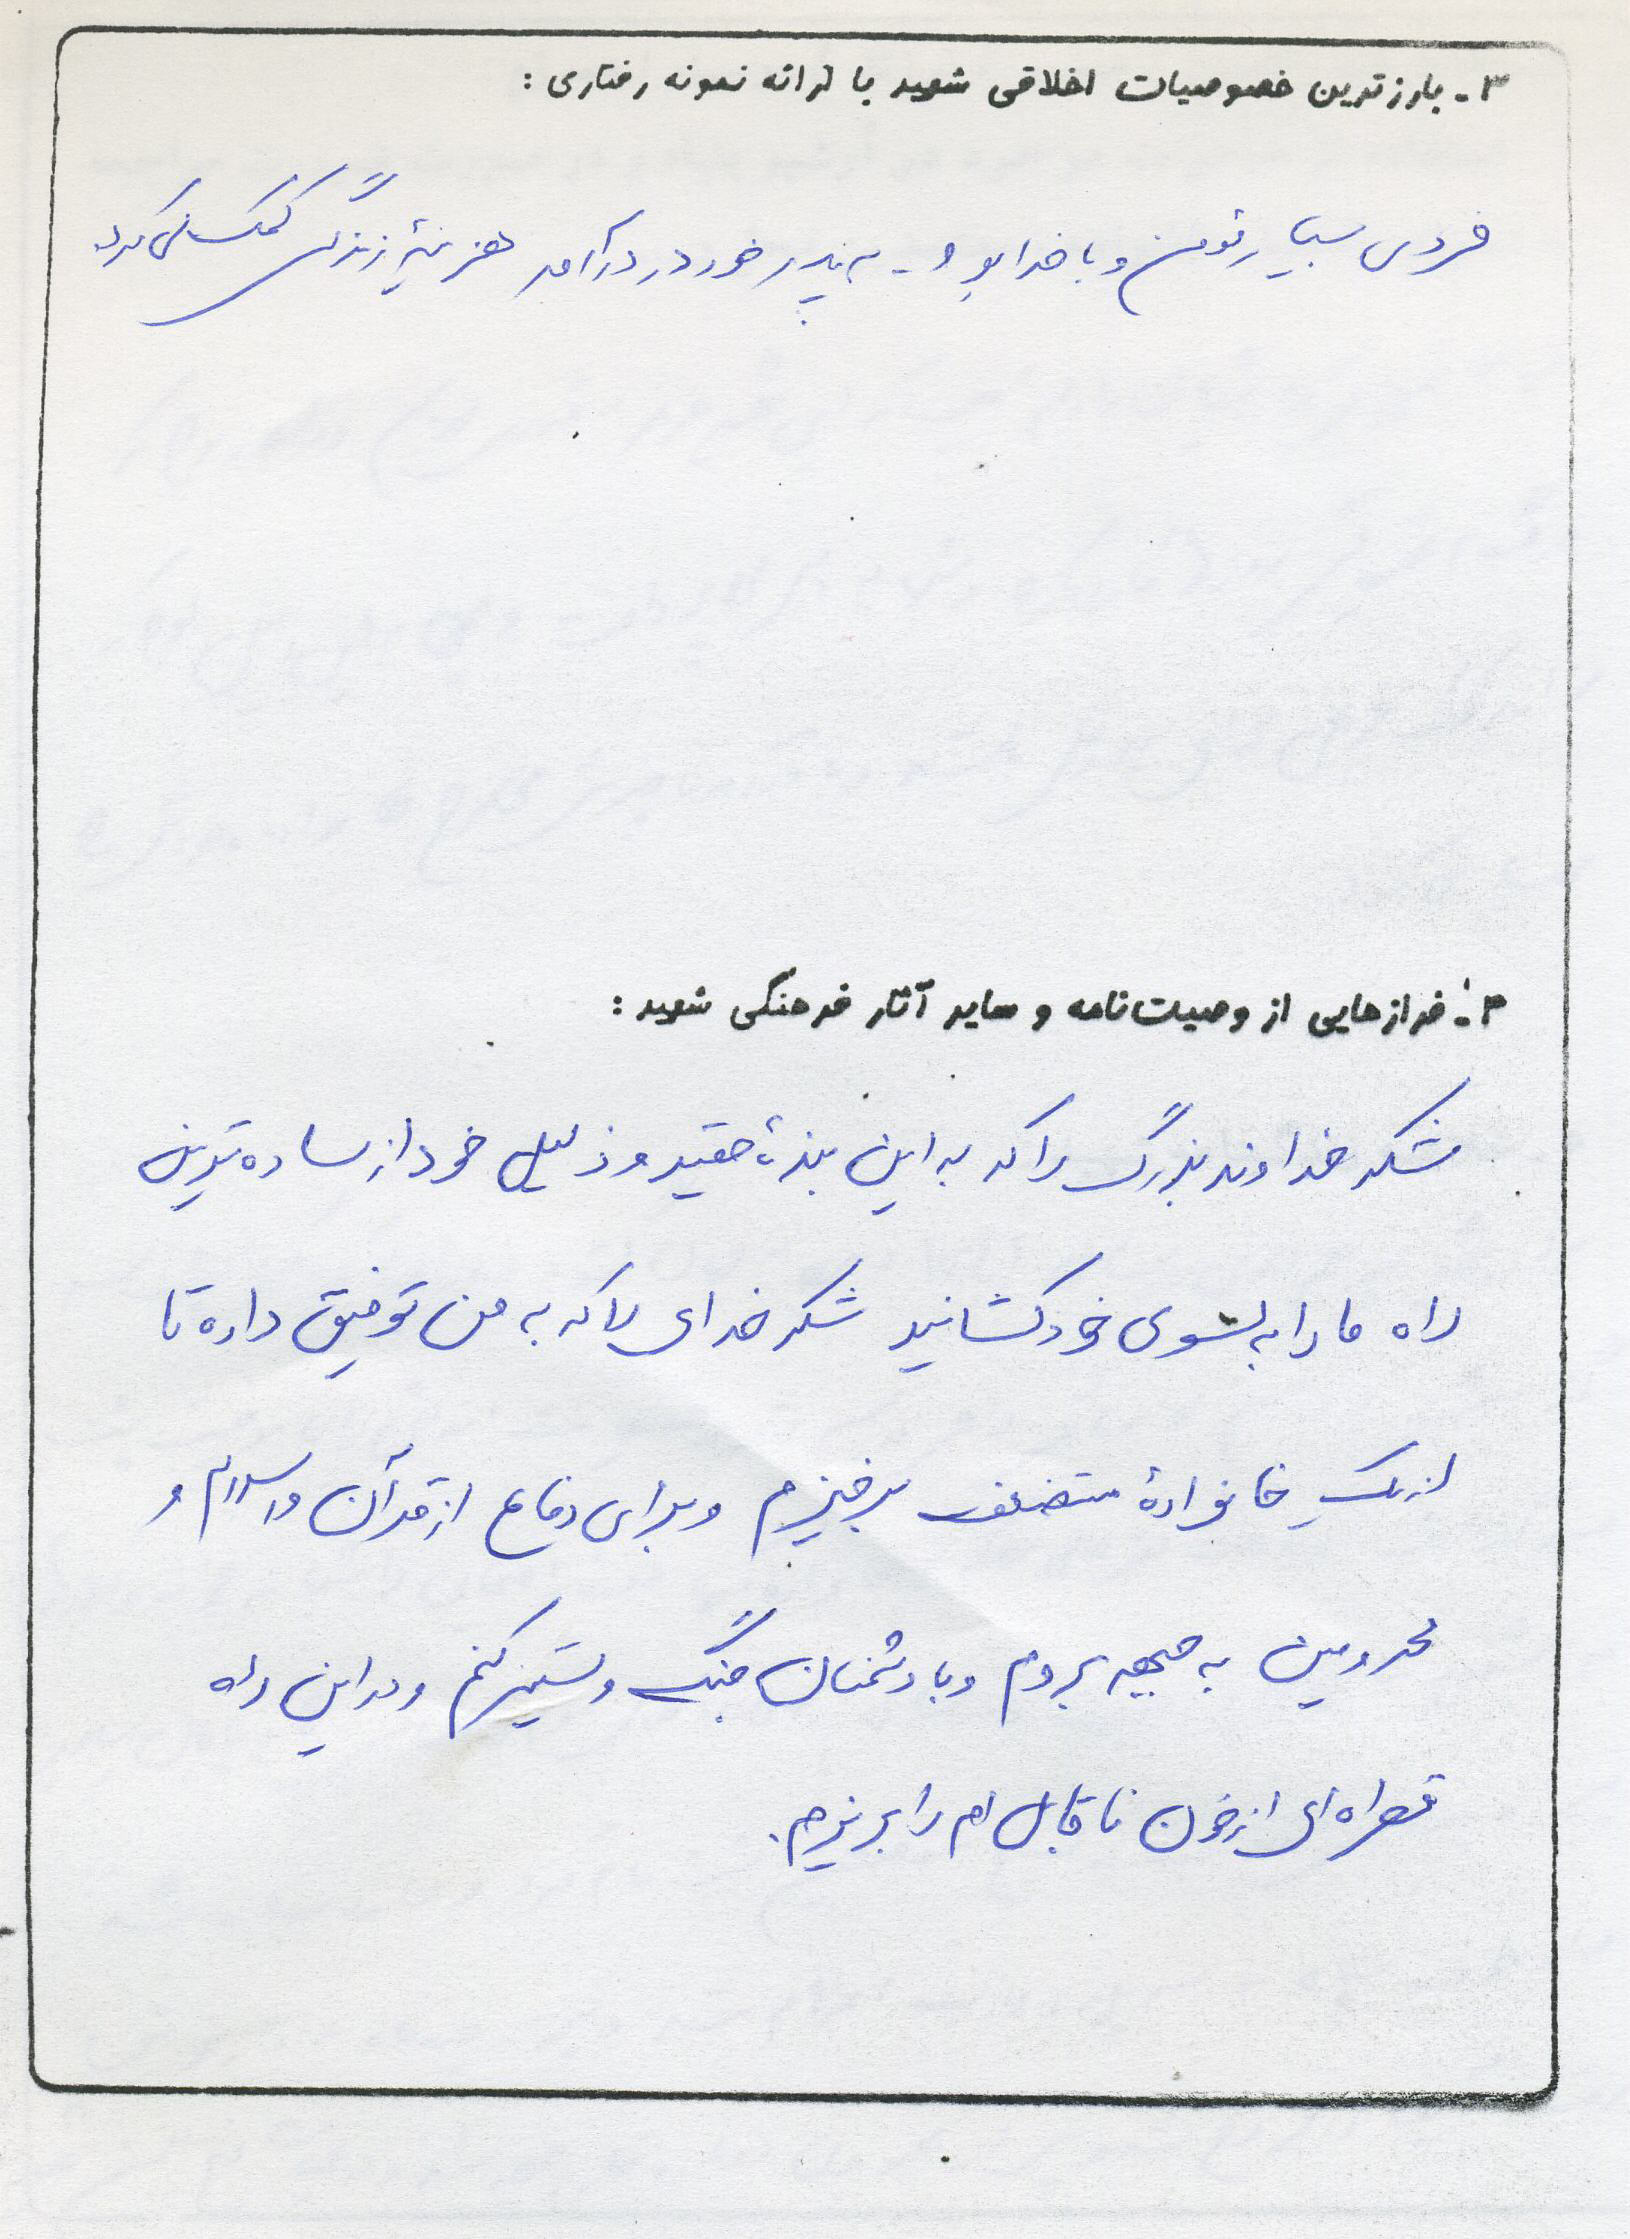 ۳- بارزترین خصوصیات اخلاقی شهید با ارائه نمونه رفتاری :
فردی بسیار مؤمن و با خدا بود - به پدر خود در درآمد هزینهٔ زندگی کمک می کرد
۴- فرازهایی از وصیت‌نامه و سایر آثار فرهنگی شهید :
شکر خداوند بزرگ را که به این بندهٔ حقیر و ذلیل خود از ساده ترین
راه ما را به بسوی خود کشانید شکر خدای را که به من توفیق داده تا
از یک خانوادهٔ مستضعف برخیزم و برای دفاع از قرآن و اسلام و
محرومین به جبهه بروم و با دشمنان جنگ و ستیز کنم و در این راه
قطره ای از خون ناقابل ام را بریزم.